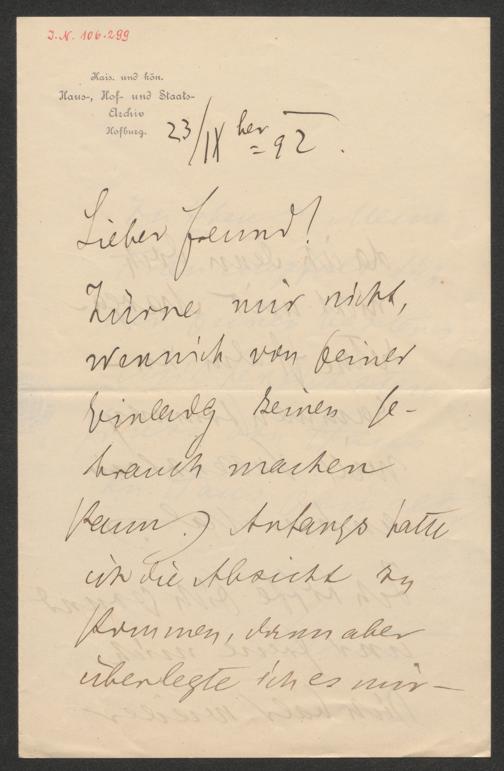 J.N. 106.299
Kais. und kön.
Haus-, Hof- und Staats-
Archiv
Hofburg.
23/IX ber = 92.
Lieber Freund!
Zürne mir nicht,
wenn ich von Deiner
Einladg keinen Ge-
brauch machen
kann. Anfangs hatte
ich die Absicht zu
kommen, dann aber
überlegte ich es mir –